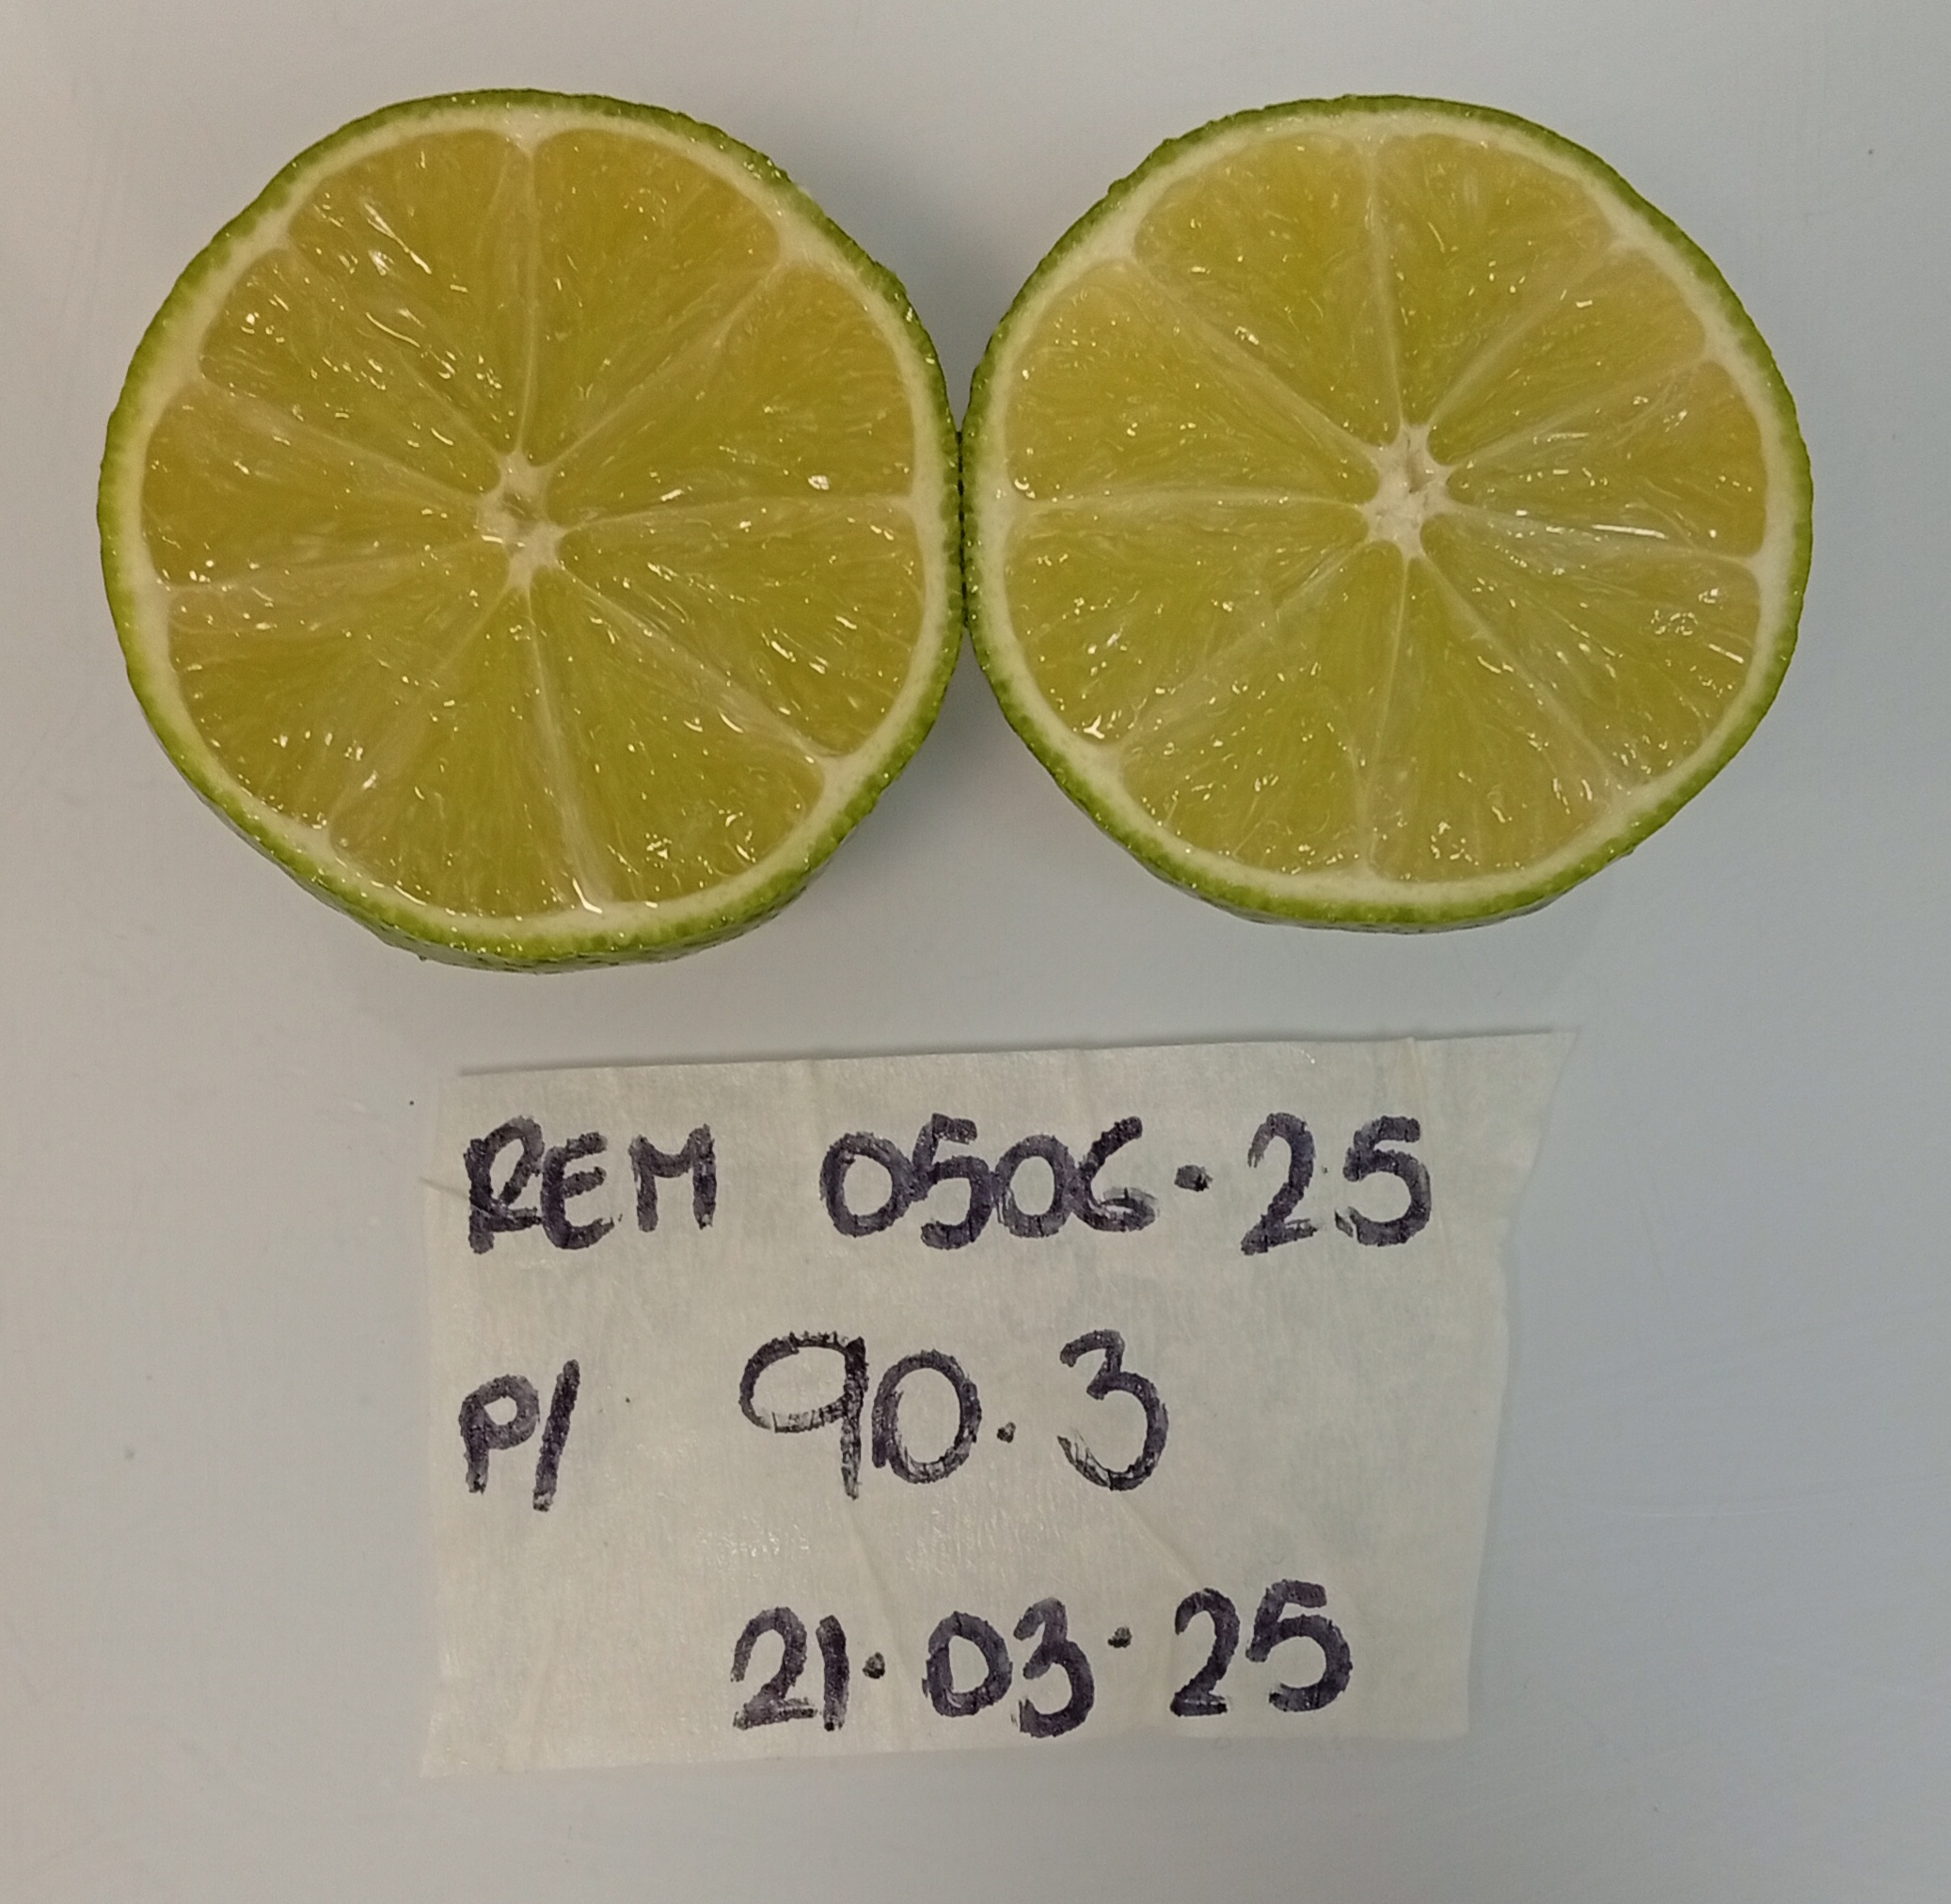 REM 0506.25
P/ 90.3
21.03.25